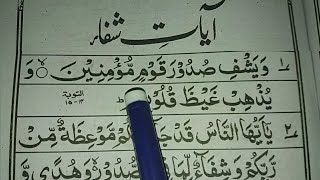 آیاتِ شفاء
۱ وَيَشْفِ صُدُوْرَ قَوْمٍ مُّؤْمِنِيْنَ ۙ وَ
يُذْهِبْ غَيْظَ التوبة ۱۴-۱۵
۲ يٰٓاَيُّهَا النَّاسُ مَّوْعِظَةٌ مِّنْ
رَّبِّكُمْ وَشِفَآءٌ لِّمَا الصُّدُوْرِ ۙ وَهُدًى وَّ